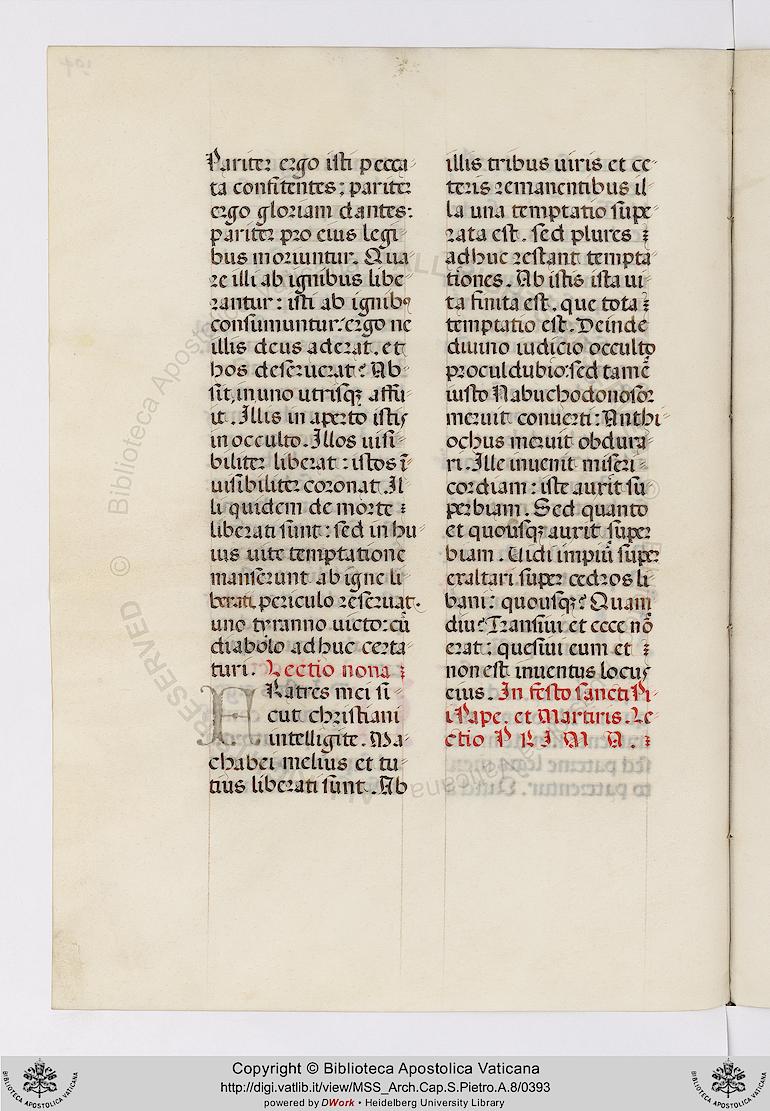 Pariter ergo isti pecca
ta confitentes; pariter
ergo gloriam dantes:
pariter pro eius legi
bus moriuntur. Qua
re illi ab ignibus libe
rantur: isti ab ignibꝰ
consumuntur: ergo ne
illis deus aderat. et
hos deseruerat? Ab
sit, in uno utrisqꝫ affu
it. Illis in aperto istis
in occulto. Illos uisi
biliter liberat: istos ī
uisibiliter coronat. Il
li quidem de morte
liberati sunt: sed in hu
ius uite temptatione
manserunt ab igne li
berati, periculo reseruat.
uno tyranno uicto: cū
diabolo adhuc certa
turi. Lectio nona
FRatres mei si
cut christiani
intelligite. Ma
chabei melius et tu
tius liberati sunt. Ab
illis tribus uiris et ce
teris remanentibus il
la una temptatio supe
rata est. sed plures
adhuc restant tempta
tiones. Ab istis ista ui
ta finita est. que tota
temptatio est. Deinde
diuino iudicio occulto
proculdubio: sed tamē
iusto Nabuchodonosor
meruit conuerti: Anthi
ochus meruit obdura
ri. Ille inuenit miseri
cordiam: iste aurit su
perbiam. Sed quanto
et quousqꝫ aurit super
biam. Uidi impiū super
exaltari super cedros li
bani: quousqꝫ? Quam
diu? Transiui et ecce nō
erat: quesiui eum et
non est inuentus locus
eius. In festo sancti Pi
i Pape. et Martiris. Le
ctio PRIMA.
Copyright © Biblioteca Apostolica Vaticana
http://digi.vatlib.it/view/MSS_Arch.Cap.S.Pietro.A.8/0393
powered by DWork • Heidelberg University Library